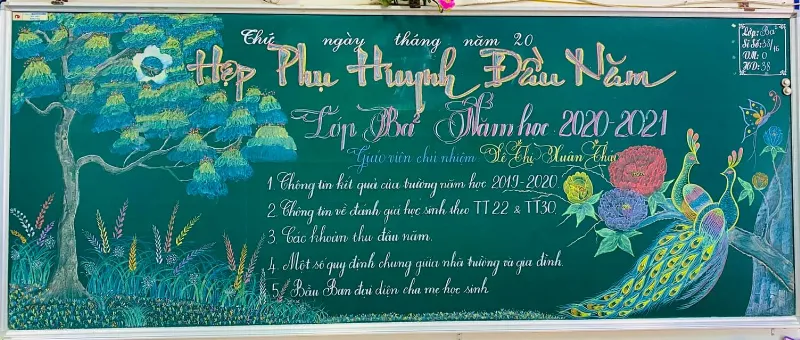 Thứ ngày tháng năm 20
Họp Phụ Huynh Đầu Năm
Lớp Ba² Năm học 2020-2021
Giáo viên chủ nhiệm Lê Thị Xuân Thảo
1. Thông tin kết quả của trường năm học 2019-2020.
2. Thông tin về đánh giá học sinh theo TT22 & TT30.
3. Các khoản thu đầu năm.
4. Một số quy định chung giữa nhà trường và gia đình.
5. Bầu Ban đại diện cha mẹ học sinh.
Lớp: Ba²
Sĩ Số: 38/16
VM: 0
HD: 38